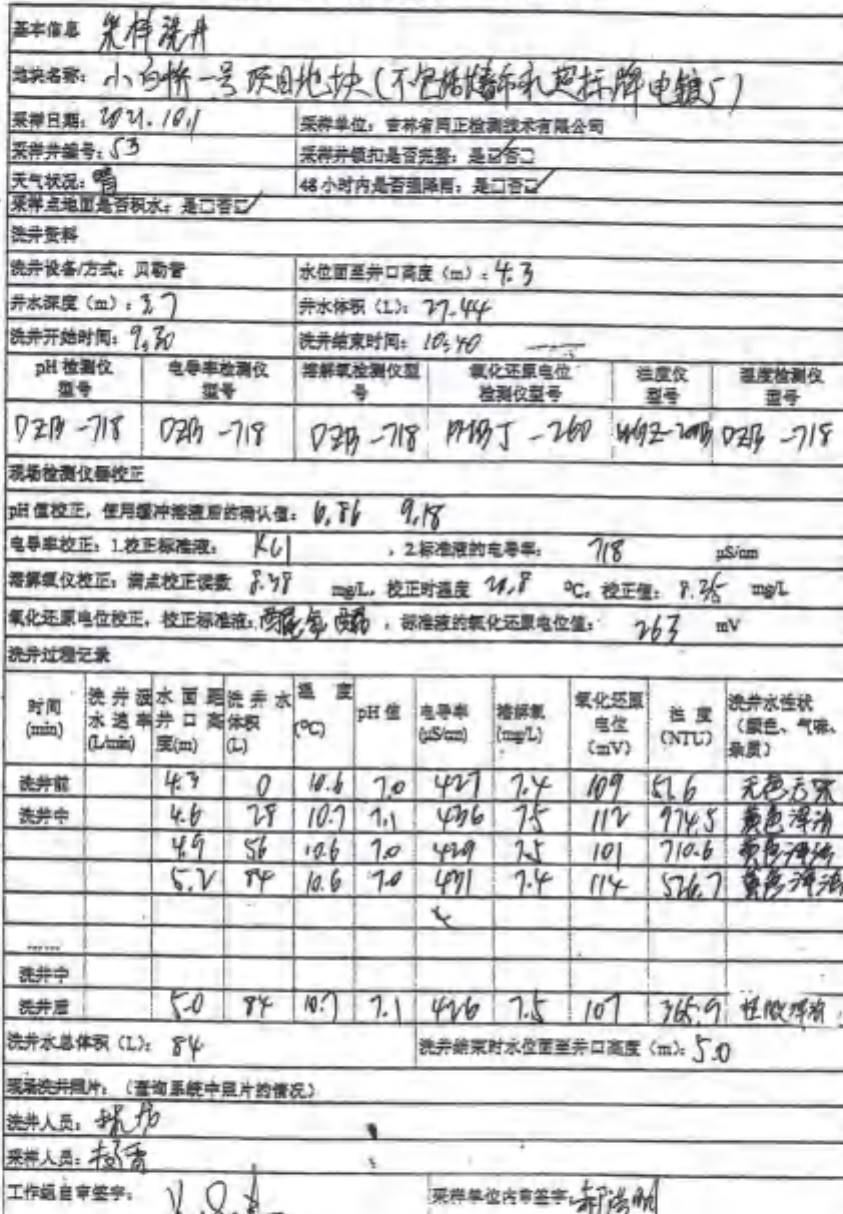 基本信息 采样洗井
地块名称: 小白桥一号项目地块(不包括
采样日期: 2021.10.1 采样单位: 吉林省同正检测技术有限公司
采样井编号: S3 采样井锁扣是否完整: 是☑否□
天气状况: 晴 48小时内是否强降雨: 是□否☑
采样点地面是否积水: 是□否☑
洗井资料
洗井设备/方式: 贝勒管 水位面至井口高度(m): 4.3
井水深度(m): 3.7 井水体积(L): 27.44
洗井开始时间: 9:30 洗井结束时间: 10:40
pH检测仪型号 电导率检测仪型号 溶解氧检测仪型号 氧化还原电位检测仪型号 浊度仪型号 温度检测仪型号
DZB-718 DZB-718 DZB-718 PHBJ-260 WGZ-200B DZB-718
现场检测仪器校正
pH值校正, 使用缓冲溶液后的确认值: 6.86 9.18
电导率校正: 1.校正标准液: KCl , 2.标准液的电导率: 718 μS/cm
溶解氧仪校正: 满点校正读数 8.38 mg/L, 校正时温度 ℃, 校正值: 8.35 mg/L
氧化还原电位校正, 校正标准液: , 标准液的氧化还原电位值: 263 mV
洗井过程记录
时间(min) 洗井汲水速率(L/min) 水面距井口高度(m) 洗井水体积(L) 温度(℃) pH值 电导率(μS/cm) 溶解氧(mg/L) 氧化还原电位(mV) 浊度(NTU) 洗井水性状(颜色、气味、杂质)
洗井前 4.3 0 10.6 7.0 427 7.4 109 51.6 无色无味
洗井中 4.6 28 10.7 7.1 436 7.5 112 974.5 黄色浑浊
4.9 56 10.6 7.0 429 7.5 101 710.6 黄色浑浊
5.2 84 10.6 7.0 431 7.4 114 526.7 黄色浑浊
......
洗井中
洗井后 5.0 84 10.7 7.1 426 7.5 107 365.9 浑浊
洗井水总体积(L): 84 洗井结束时水位面至井口高度(m): 5.0
现场洗井照片: (查询系统中照片的情况)
洗井人员:
采样人员:
工作组自审签字: 采样单位内审签字: